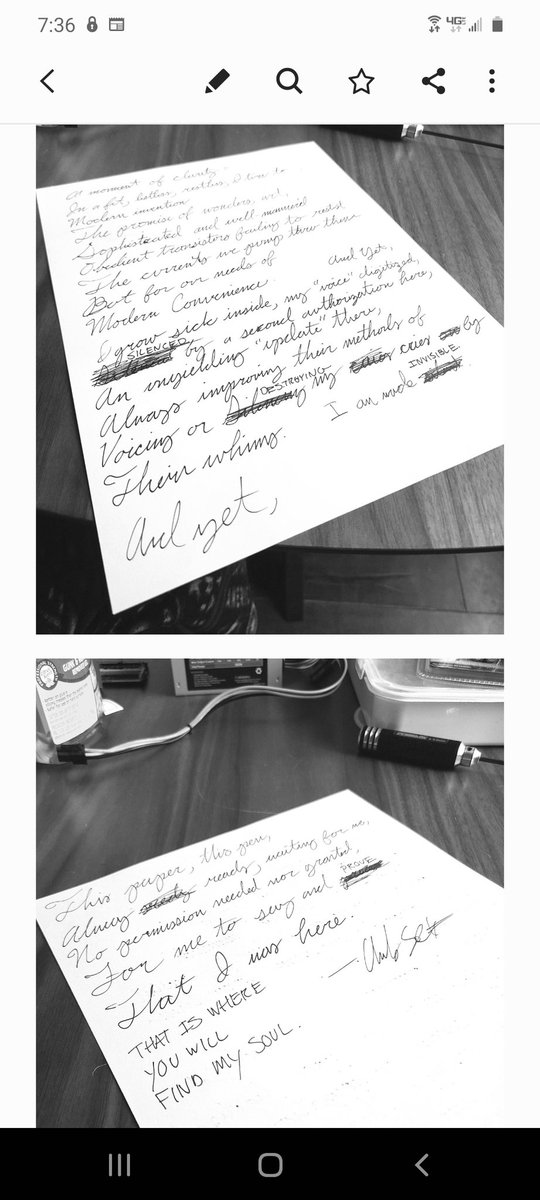 7:36
4G
A moment of clarity.
In a fit, listless, restless, I turn to
Modern invention
The promise of wonders,
Sophisticated and well mannered
Obedient transistors failing to resist
The currents we pump threw them
But for our needs of
Modern Convenience. And yet,
I grow sick inside, my "voice" digitized,
SILENCED by a second authorization here,
An unyielding "update" there,
Always improving their methods of
Voicing or DESTROYING my cries by
Their whims. I am made INVISIBLE.
And yet,
This paper, this pen,
Always ready, waiting for me,
No permission needed nor granted,
For me to say and PROVE
That I was here.
THAT IS WHERE
YOU WILL
FIND MY SOUL.